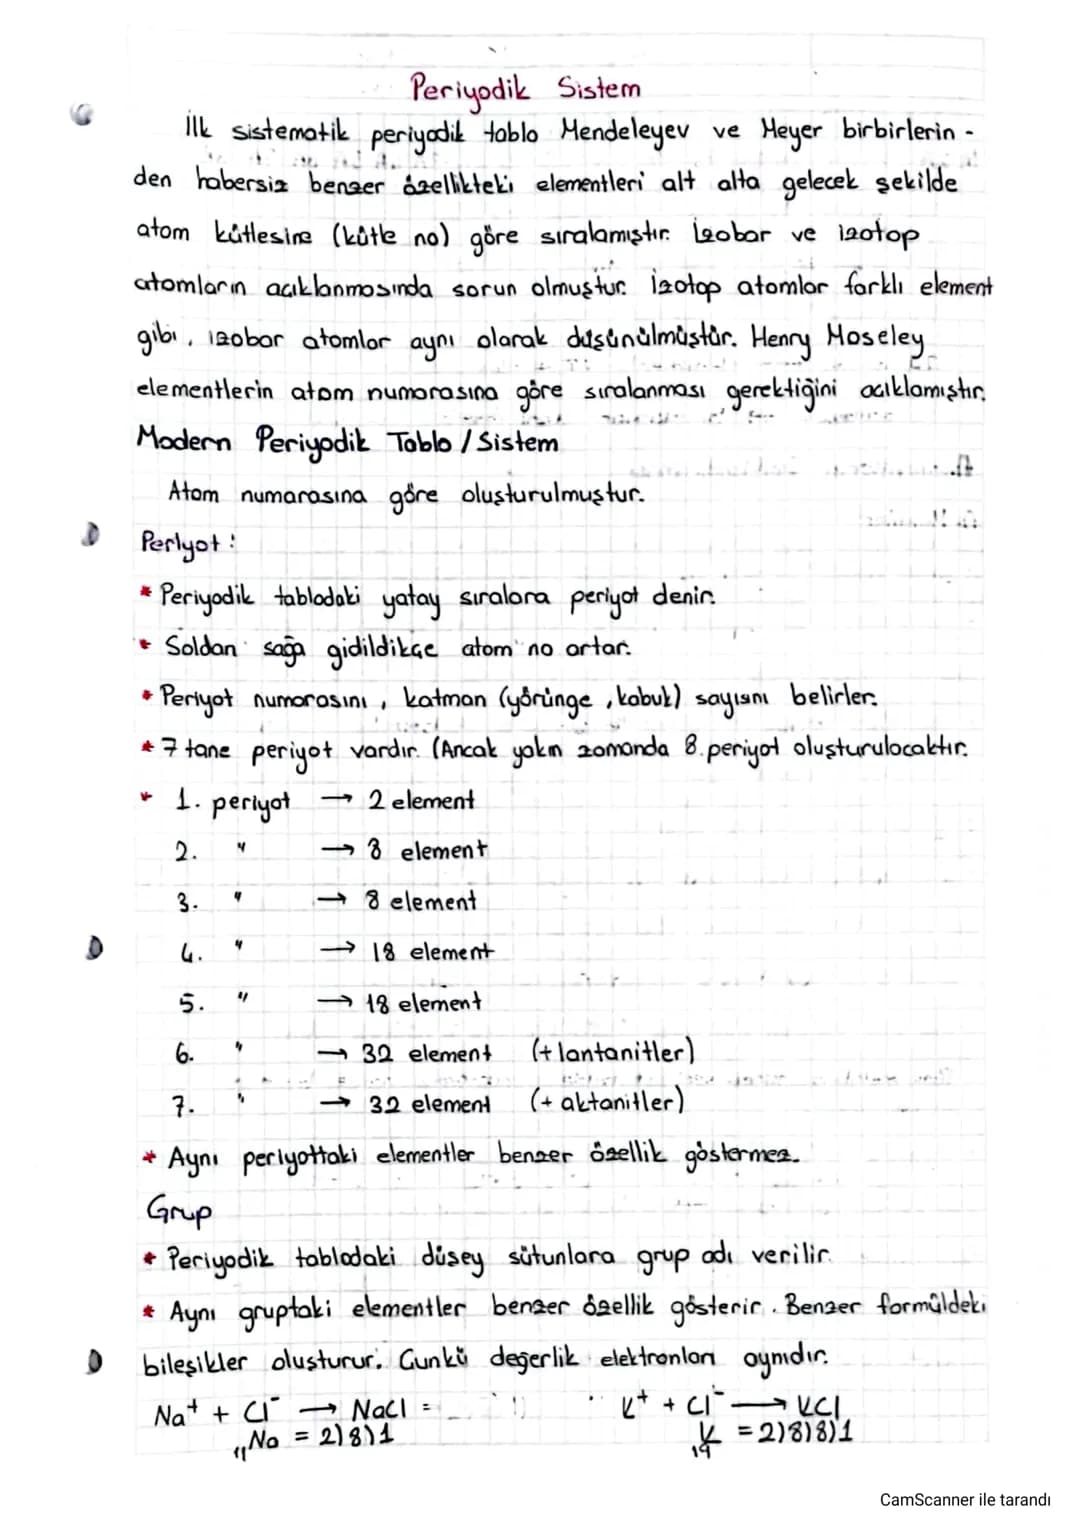 Periyodik Sistem
İlk sistematik periyodik tablo Mendeleyev ve Meyer birbirlerin-
den habersiz benzer özellikteki elementleri alt alta gelecek şekilde
atom kütlesine (kütle no) göre sıralamıştır. İzobar ve izotop
atomların açıklanmasında sorun olmuştur. İzotop atomlar farklı element
gibi, izobar atomlar aynı olarak düşünülmüştür. Henry Moseley
elementlerin atom numarasına göre sıralanması gerektiğini açıklamıştır.
Modern Periyodik Tablo / Sistem
Atom numarasına göre oluşturulmuştur.
Periyot:
* Periyodik tablodaki yatay sıralara periyot denir.
* Soldan sağa gidildikçe atom no artar.
* Periyot numarasını, katman (yörünge, kabuk) sayısını belirler.
* 7 tane periyot vardır. (Ancak yakın zamanda 8. periyot oluşturulacaktır.
* 1. periyot → 2 element
2. " → 8 element
3. " → 8 element
4. " → 18 element
5. " → 18 element
6. " → 32 element (+ lantanitler)
7. " → 32 element (+ aktanitler)
* Aynı periyottaki elementler benzer özellik göstermez.
Grup
* Periyodik tablodaki düşey sütunlara grup adı verilir.
* Aynı gruptaki elementler benzer özellik gösterir. Benzer formüldeki
bileşikler oluşturur. Çünkü değerlik elektronları aynıdır.
Na⁺ + Cl⁻ → NaCl = K⁺ + Cl⁻ → KCl
₁₁Na = 2)8)1 ₁₉K = 2)8)8)1
CamScanner ile tarandı